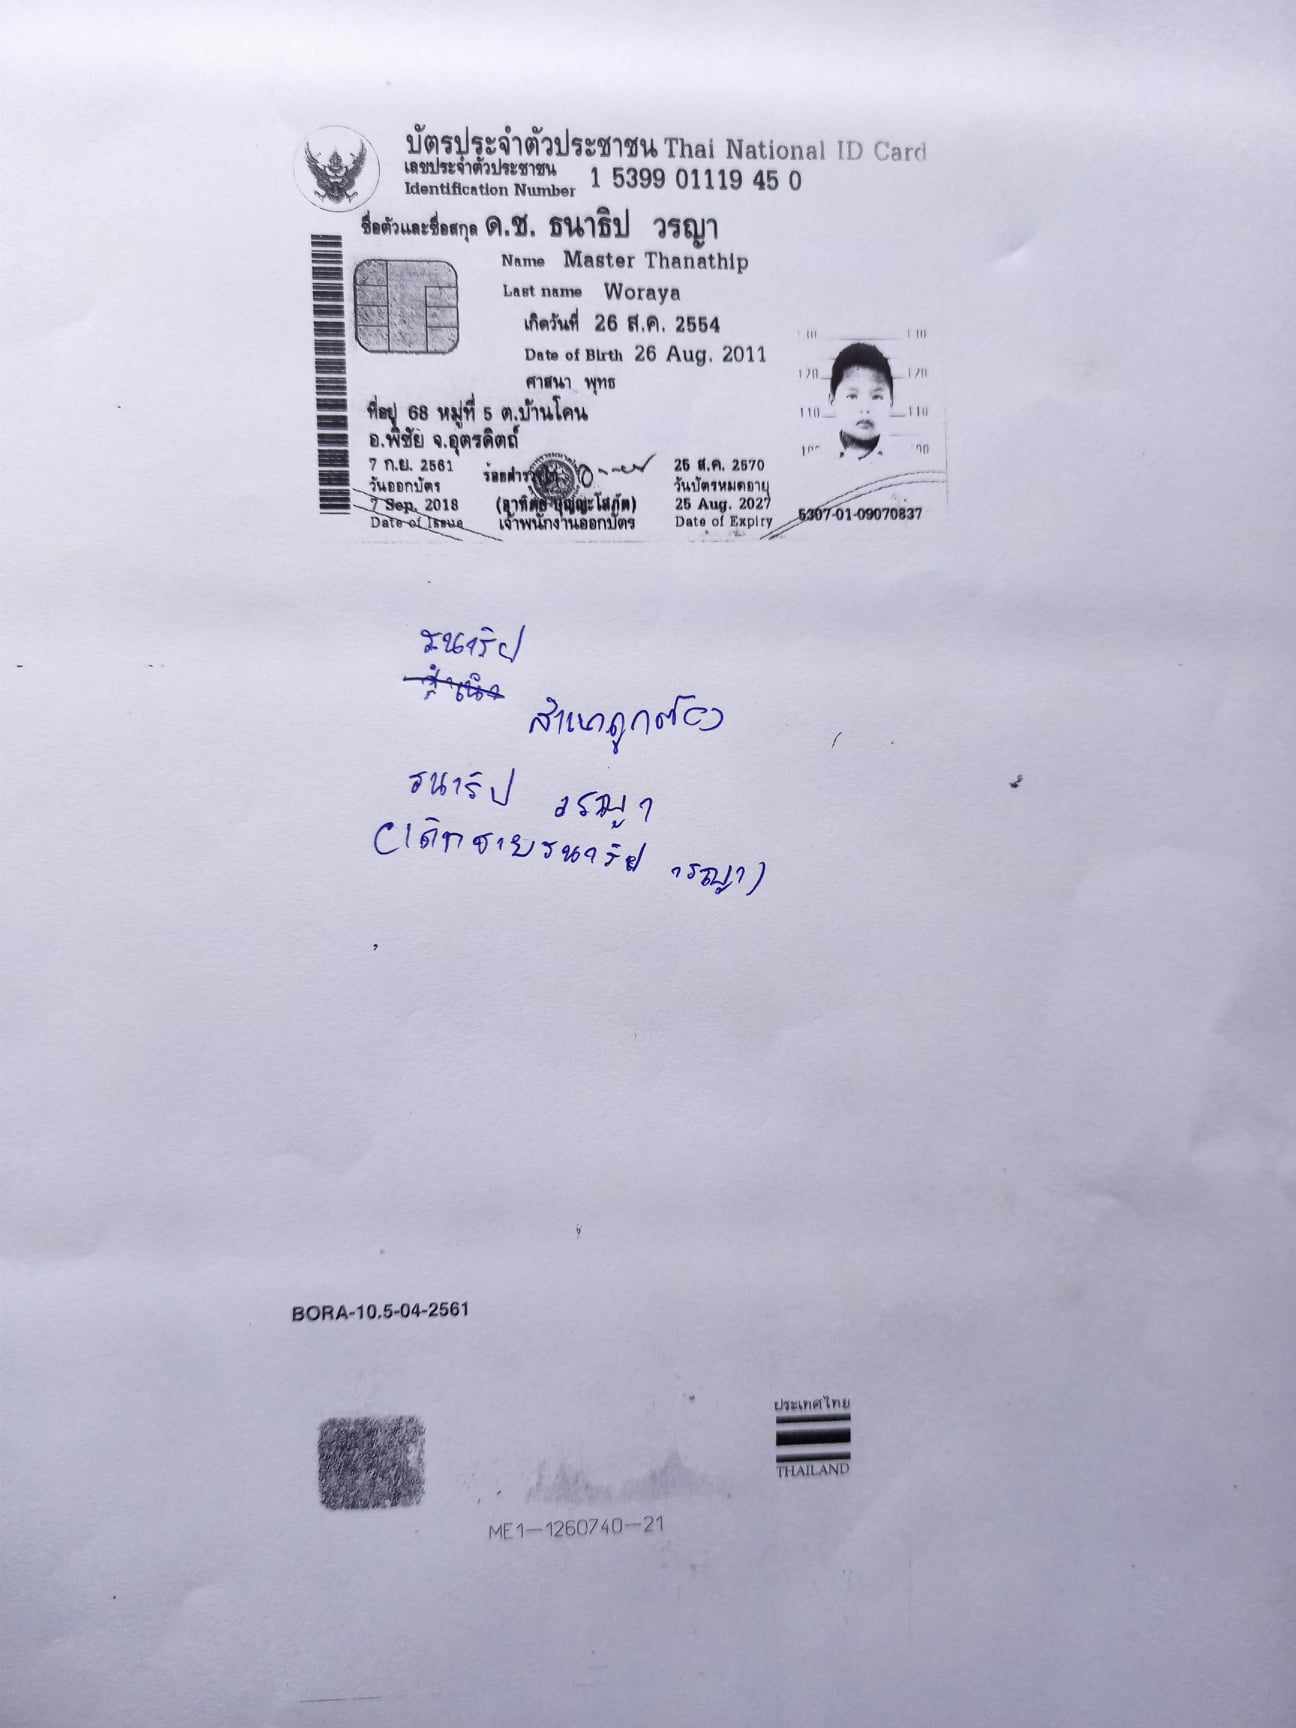 บัตรประจำตัวประชาชน Thai National ID Card
เลขประจำตัวประชาชน
Identification Number 1 5399 01119 45 0
ชื่อตัวและชื่อสกุล ด.ช. ธนาธิป วรญา
Name Master Thanathip
Last name Woraya
เกิดวันที่ 26 ส.ค. 2554
Date of Birth 26 Aug. 2011
ศาสนา พุทธ
ที่อยู่ 68 หมู่ที่ 5 ต.บ้านโคน
อ.พิชัย จ.อุตรดิตถ์
120 120
110 110
7 ก.ย. 2561
วันออกบัตร
7 Sep. 2018
Date of Issue
ร้อยตำรวจ
เจ้าพนักงานออกบัตร
25 ส.ค. 2570
วันบัตรหมดอายุ
25 Aug. 2027
Date of Expiry
5307-01-09070837
ธนาธิป
สำเนาถูกต้อง
ธนาธิป วรญา
(เด็กชายธนาธิป วรญา)
BORA-10.5-04-2561
ประเทศไทย
THAILAND
ME1-1260740-21